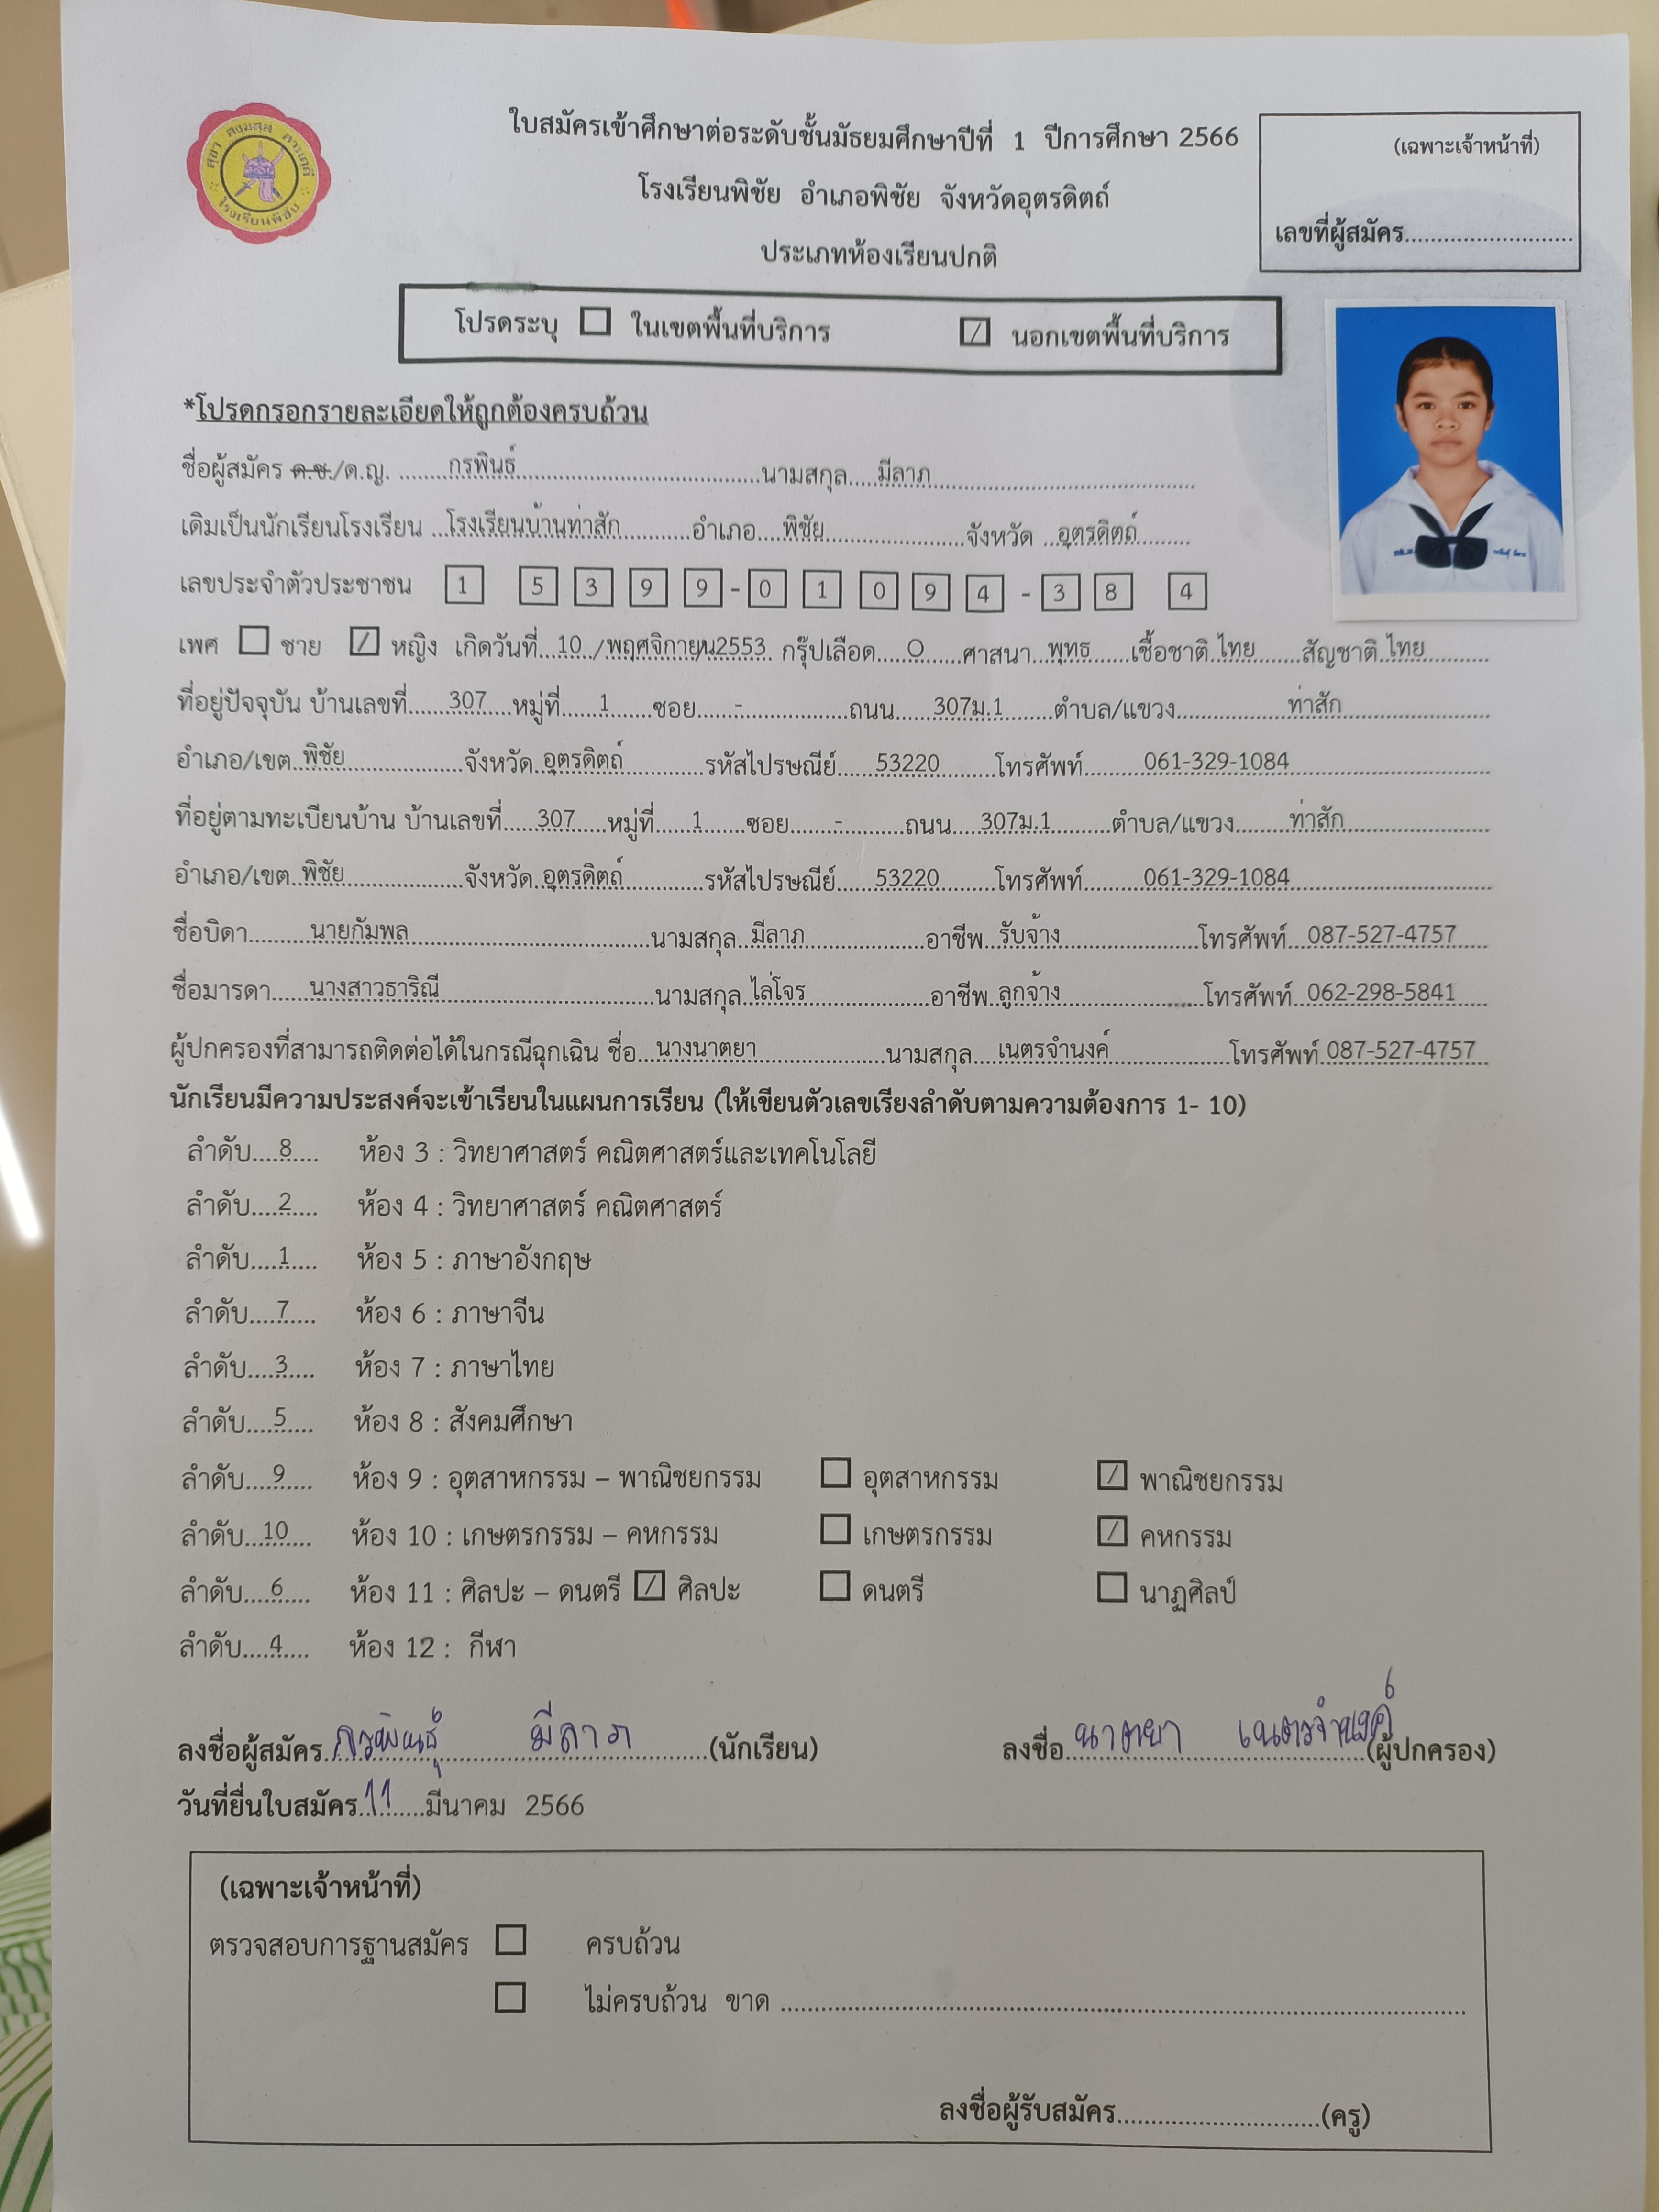 สุชา สุขุมสล คารเกดี
โรงเรียนพิชัย
ใบสมัครเข้าศึกษาต่อระดับชั้นมัธยมศึกษาปีที่ 1 ปีการศึกษา 2566
(เฉพาะเจ้าหน้าที่)
โรงเรียนพิชัย อำเภอพิชัย จังหวัดอุตรดิตถ์
เลขที่ผู้สมัคร..........................
ประเภทห้องเรียนปกติ
โปรดระบุ ☐ ในเขตพื้นที่บริการ ☑ นอกเขตพื้นที่บริการ
*โปรดกรอกรายละเอียดให้ถูกต้องครบถ้วน
ชื่อผู้สมัคร ด.ช./ด.ญ. ........กรพินธ์........นามสกุล....มีลาภ........
เดิมเป็นนักเรียนโรงเรียน ...โรงเรียนบ้านท่าสัก........อำเภอ....พิชัย........จังหวัด ...อุตรดิตถ์........
เลขประจำตัวประชาชน 1 5 3 9 9 - 0 1 0 9 4 - 3 8 4
เพศ ☐ ชาย ☑ หญิง เกิดวันที่...10 /พฤศจิกายน/2553. กรุ๊ปเลือด.....O......ศาสนา...พุทธ......เชื้อชาติ.ไทย.......สัญชาติ.ไทย..........
ที่อยู่ปัจจุบัน บ้านเลขที่.......307....หมู่ที่......1......ซอย......-..............ถนน......307ม.1.......ตำบล/แขวง..............ท่าสัก....................
อำเภอ/เขต..พิชัย...............จังหวัด.อุตรดิตถ์...........รหัสไปรษณีย์.....53220........โทรศัพท์........061-329-1084..........................
ที่อยู่ตามทะเบียนบ้าน บ้านเลขที่.....307.....หมู่ที่......1......ซอย.......-.........ถนน.....307ม.1.........ตำบล/แขวง........ท่าสัก....................
อำเภอ/เขต..พิชัย...............จังหวัด.อุตรดิตถ์...........รหัสไปรษณีย์.....53220........โทรศัพท์........061-329-1084..........................
ชื่อบิดา.........นายกัมพล................................นามสกุล..มีลาภ................อาชีพ..รับจ้าง..................โทรศัพท์...087-527-4757....
ชื่อมารดา.....นางสาวธาริณี................................นามสกุล.ไล่โจร................อาชีพ..ลูกจ้าง..................โทรศัพท์..062-298-5841....
ผู้ปกครองที่สามารถติดต่อได้ในกรณีฉุกเฉิน ชื่อ...นางนาตยา.................นามสกุล....เนตรจำนงค์................โทรศัพท์.087-527-4757..
นักเรียนมีความประสงค์จะเข้าเรียนในแผนการเรียน (ให้เขียนตัวเลขเรียงลำดับตามความต้องการ 1- 10)
ลำดับ....8.... ห้อง 3 : วิทยาศาสตร์ คณิตศาสตร์และเทคโนโลยี
ลำดับ....2.... ห้อง 4 : วิทยาศาสตร์ คณิตศาสตร์
ลำดับ....1.... ห้อง 5 : ภาษาอังกฤษ
ลำดับ....7.... ห้อง 6 : ภาษาจีน
ลำดับ....3.... ห้อง 7 : ภาษาไทย
ลำดับ....5.... ห้อง 8 : สังคมศึกษา
ลำดับ....9.... ห้อง 9 : อุตสาหกรรม – พาณิชยกรรม ☐ อุตสาหกรรม ☑ พาณิชยกรรม
ลำดับ...10.... ห้อง 10 : เกษตรกรรม – คหกรรม ☐ เกษตรกรรม ☑ คหกรรม
ลำดับ....6.... ห้อง 11 : ศิลปะ – ดนตรี ☑ ศิลปะ ☐ ดนตรี ☐ นาฏศิลป์
ลำดับ....4.... ห้อง 12 : กีฬา
ลงชื่อผู้สมัคร.กรพินธุ์ มีลาภ............(นักเรียน) ลงชื่อ.นาตยา เนตรจำนงค์(ผู้ปกครอง)
วันที่ยื่นใบสมัคร.11.......มีนาคม 2566
(เฉพาะเจ้าหน้าที่)
ตรวจสอบการฐานสมัคร ☐ ครบถ้วน
☐ ไม่ครบถ้วน ขาด ....................................................................................
ลงชื่อผู้รับสมัคร..............................(ครู)